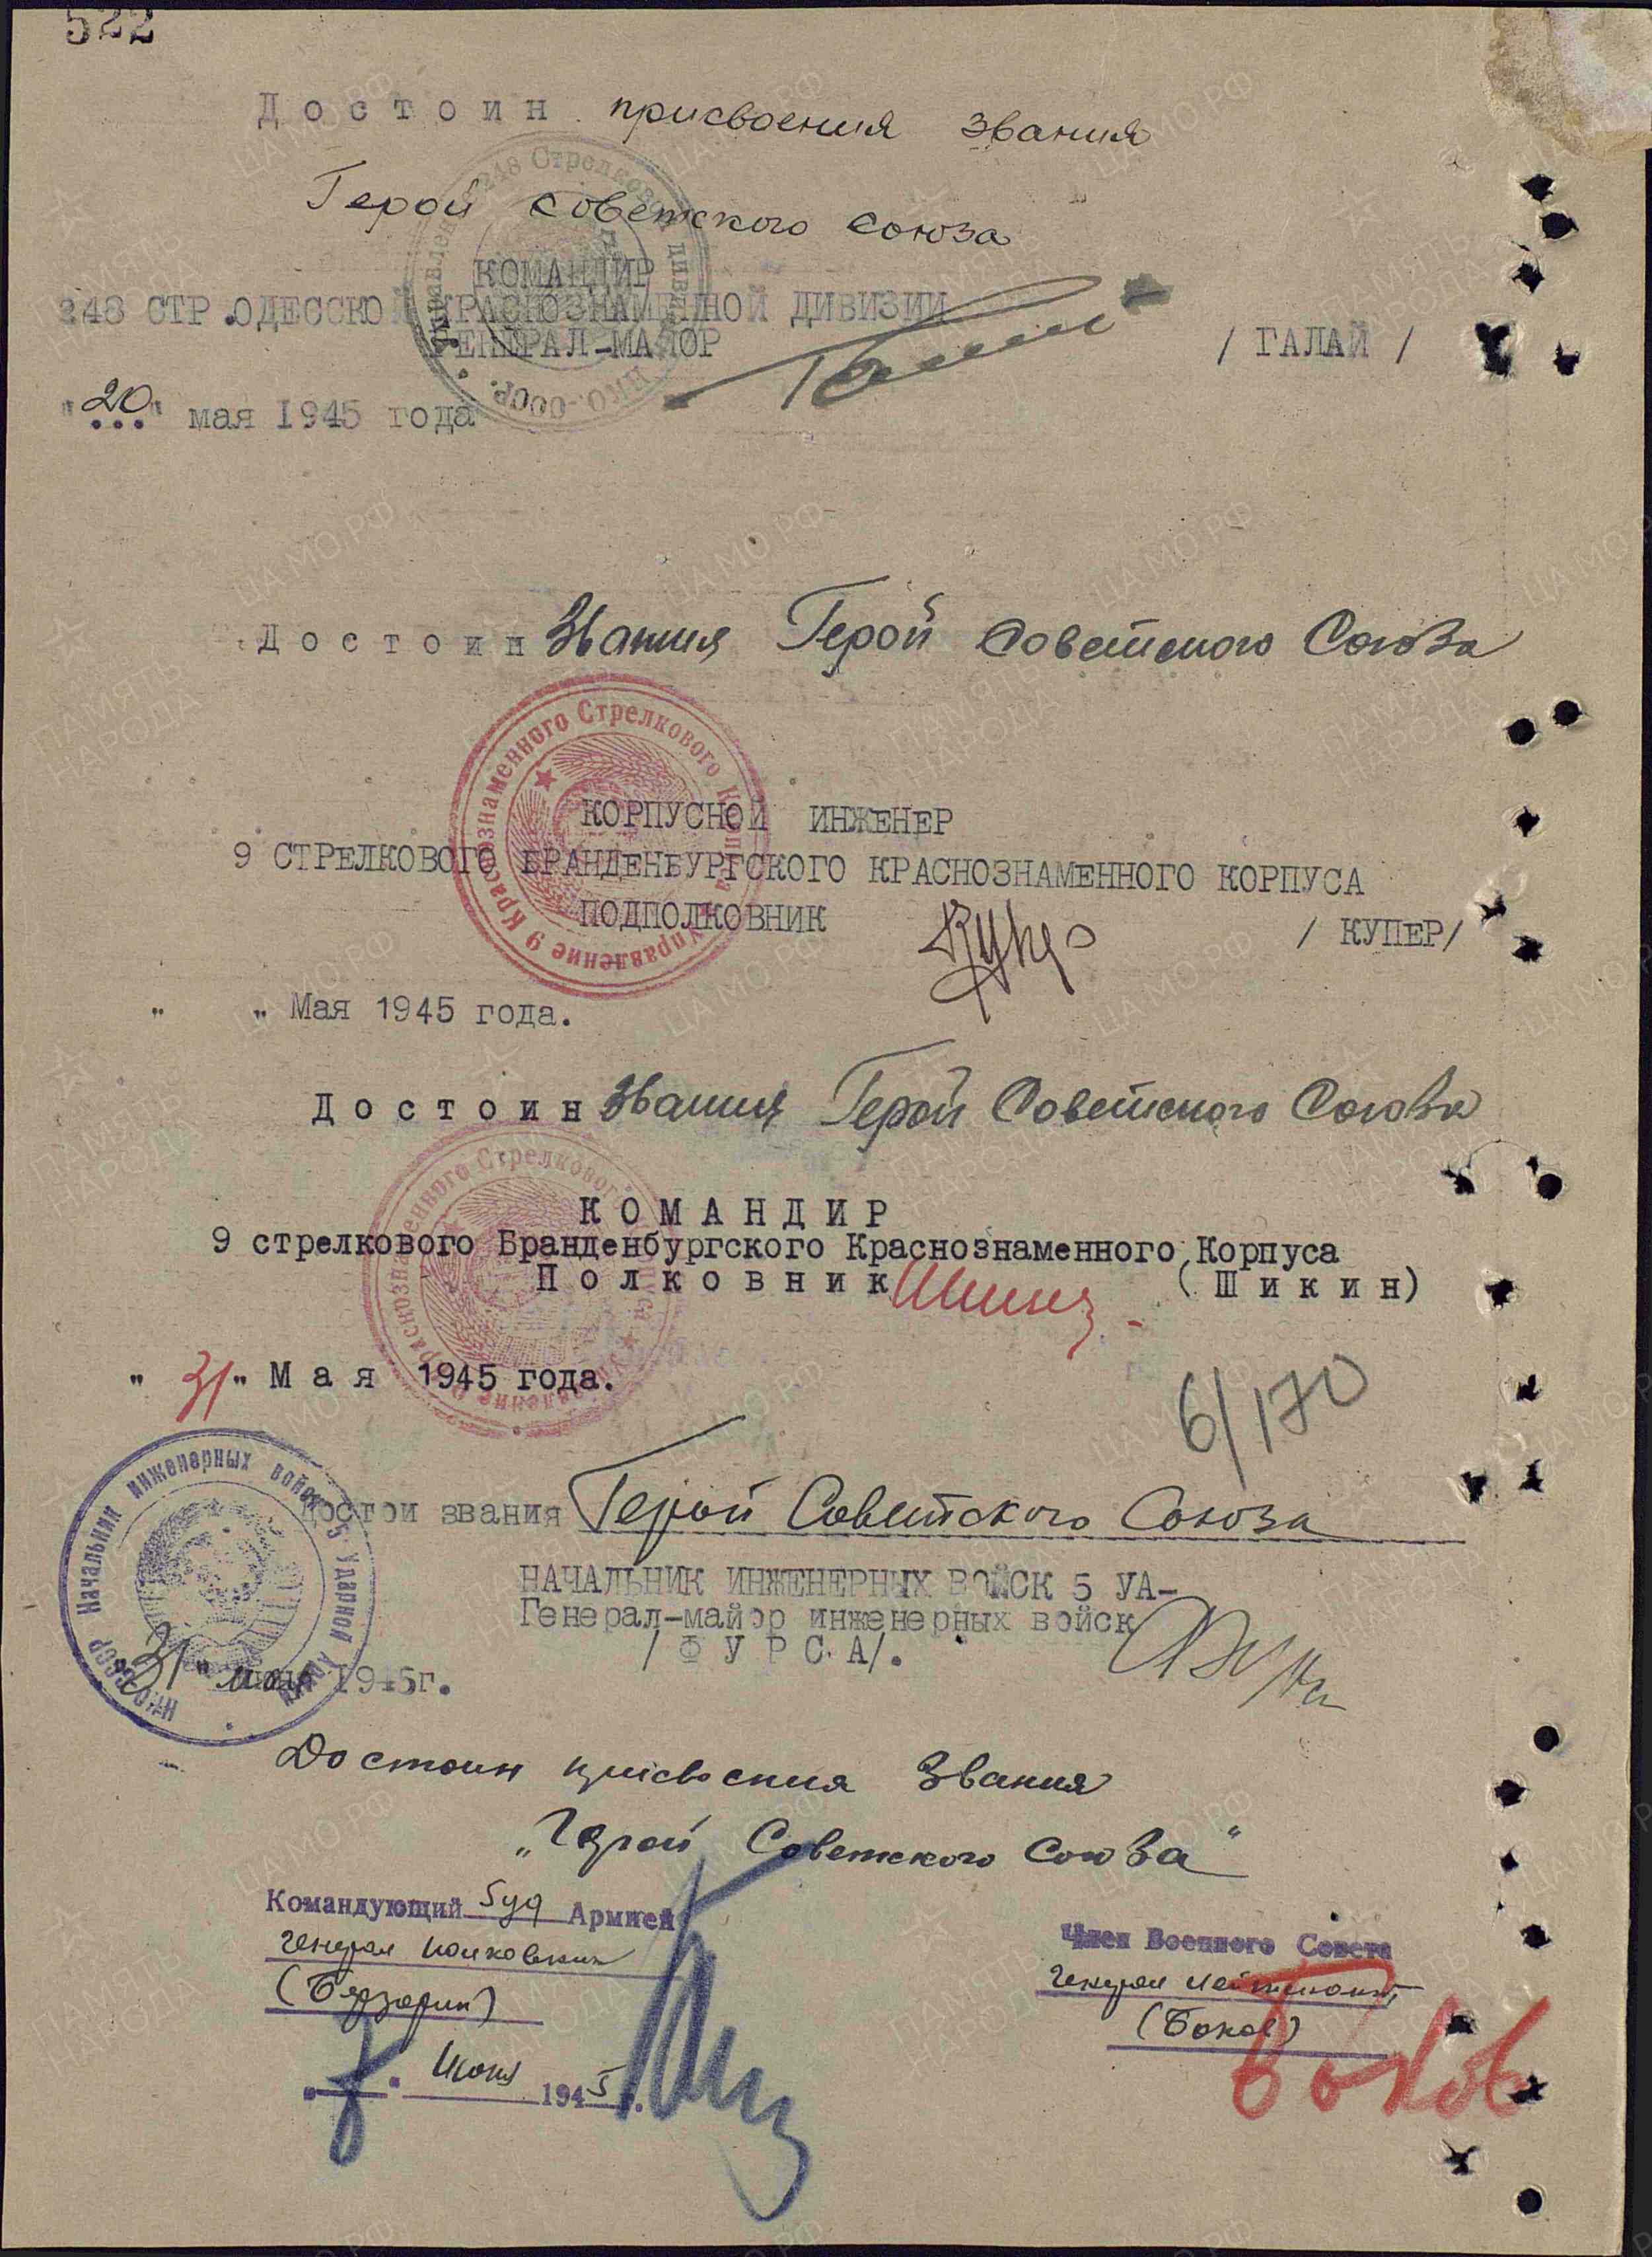 522
Достоин присвоения звания
Герой Советского Союза
КОМАНДИР
248 СТР.ОДЕССКОЙ КРАСНОЗНАМЕННОЙ ДИВИЗИИ
ГЕНЕРАЛ-МАЙОР / ГАЛАЙ /
"20" мая 1945 года
Достоин звания Герой Советского Союза
КОРПУСНОЙ ИНЖЕНЕР
9 СТРЕЛКОВОГО БРАНДЕНБУРГСКОГО КРАСНОЗНАМЕННОГО КОРПУСА
ПОДПОЛКОВНИК / КУПЕР/
" " Мая 1945 года.
Достоин звания Герой Советского Союза
КОМАНДИР
9 стрелкового Бранденбургского Краснознаменного Корпуса
Полковник (Шикин)
"31" Мая 1945 года.
6/170
Достои звания Герой Советского Союза
НАЧАЛЬНИК ИНЖЕНЕРНЫХ ВОЙСК 5 УА-
Генерал-майор инженерных войск
/ФУРСА/.
"31" мая 1945г.
Достоин присвоения Звания
"Герой Советского Союза"
Командующий 5 уд Армией
генерал полковник
(Берзарин)
"8" июня 1945 г.
Член Военного Совета
генерал лейтенант
(Боков)
Боков
Управление 9 Краснознаменного Стрелкового Корпуса
Управление 9 Краснознаменного Стрелкового Корпуса
Начальник инженерных войск 5 Ударной Армии
НКО СССР
ПАМЯТЬ НАРОДА
ЦА МО РФ